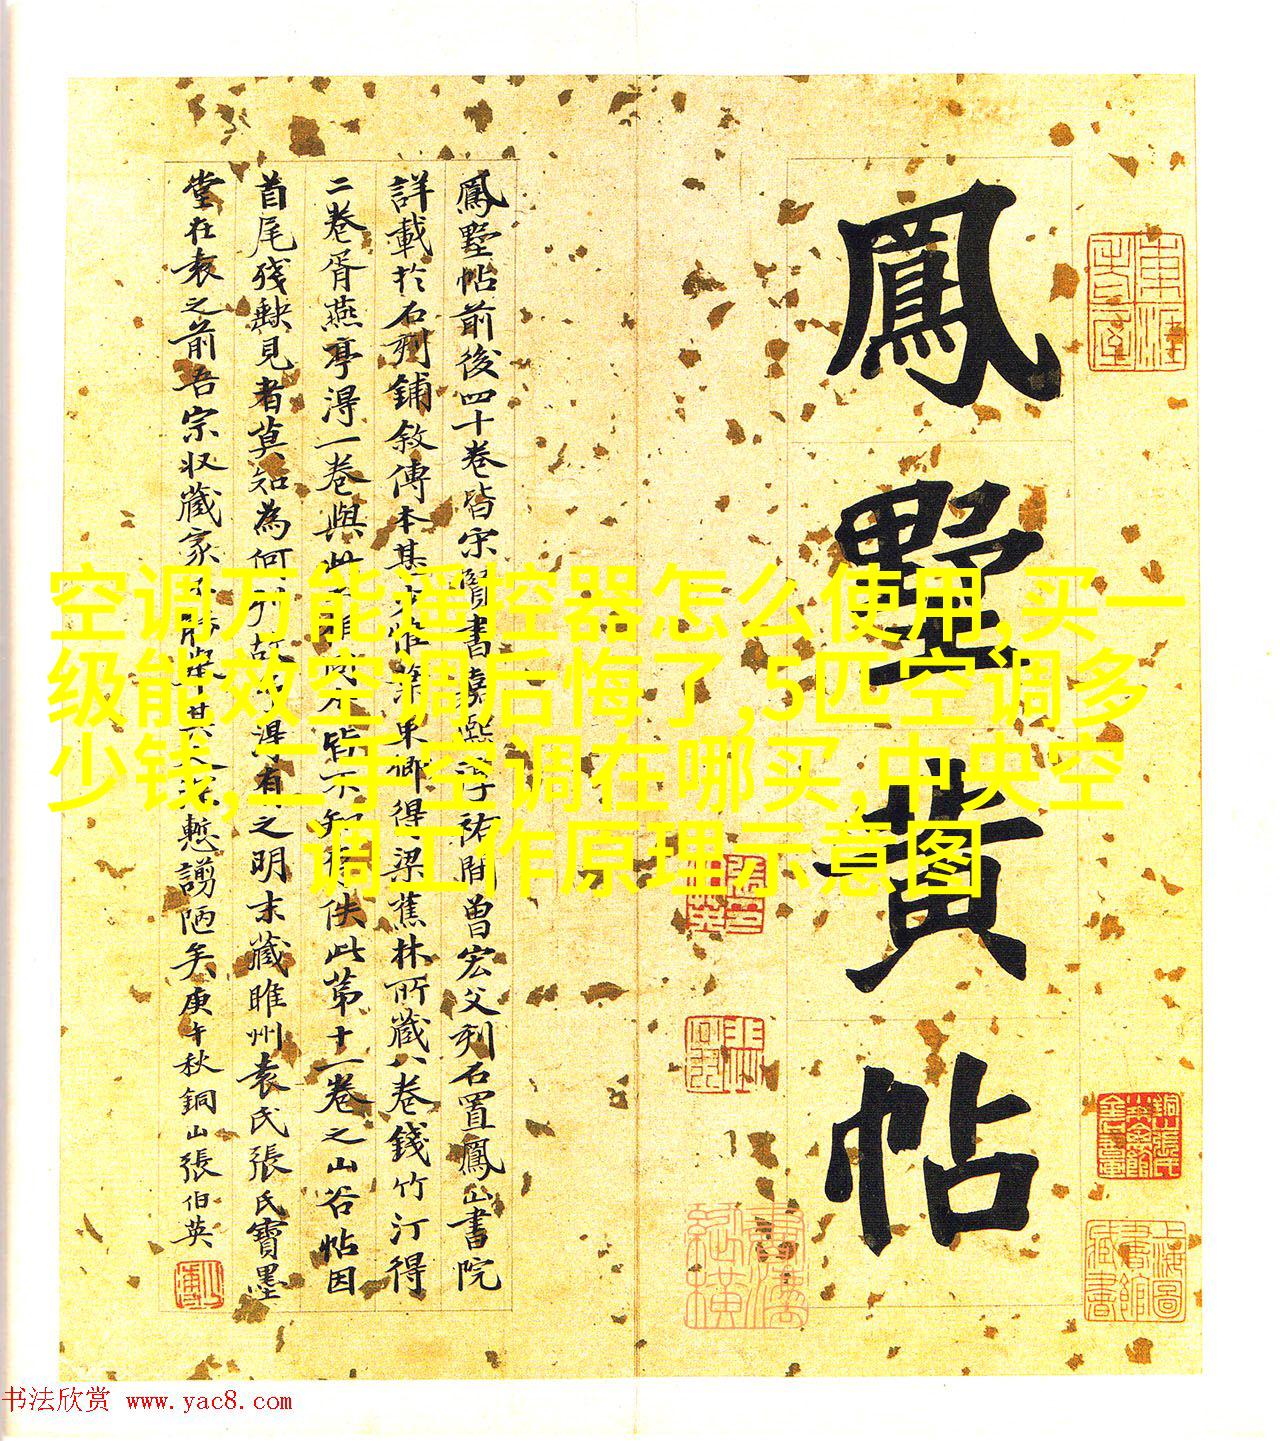 鳳墅黃帖
鳳墅帖前後四十卷皆宋賢書嘉熙淳祐間曾宏父刻石置鳳山書院
詳載於石刻鋪敘傳本甚少惟葉東卿得梁蕉林所藏八卷錢竹汀得
二卷胥燕亭得一卷與此
皆不知
佚此第十一卷之山谷帖因
首尾殘缺見者莫知為何刻
得有之明末藏睢州袁氏張氏寶墨
堂在袁之前吾宗收藏家
慙謭陋矣庚午秋銅山張伯英
空调万能遥控器怎么使用,买一
级能效空调后悔了,5匹空调多
少钱,二手空调在哪买,中央空
调工作原理示意图
上海圖書館藏書
书法欣赏 www.yac8.com